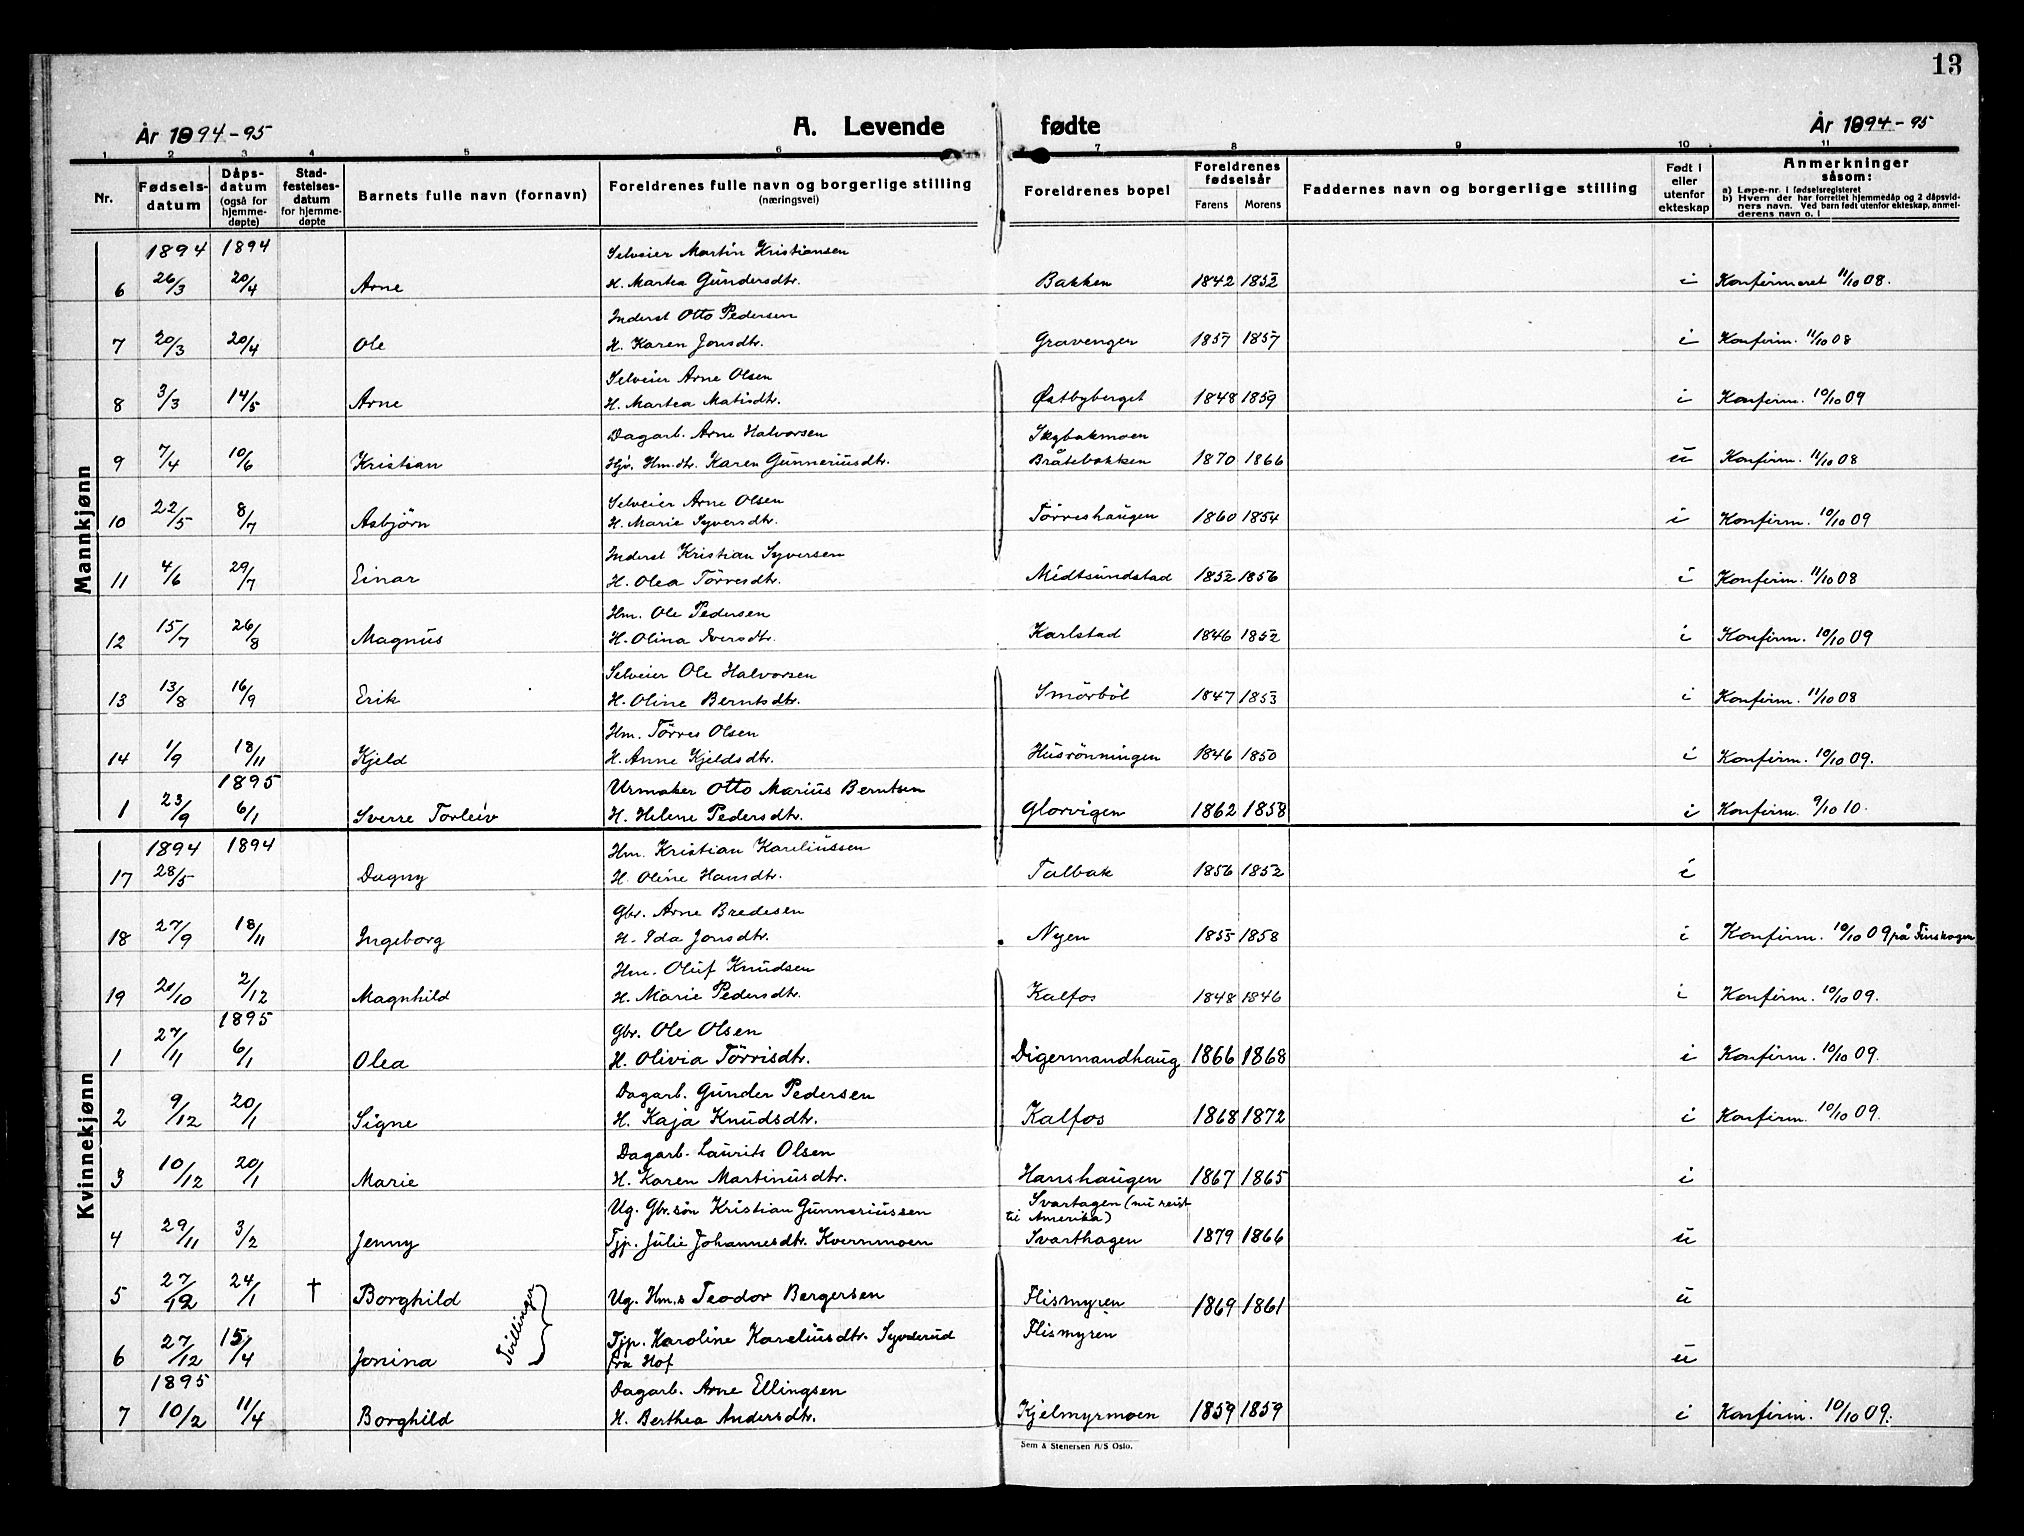 13
År 1894-95 A. Levende fødte År 1894-95
1 2 3 4 5 6 7 8 9 10 11
Nr. Fødselsdatum Dåpsdatum (også for hjemmedøpte) Stadfestelsesdatum for hjemmedøpte Barnets fulle navn (fornavn) Foreldrenes fulle navn og borgerlige stilling (næringsvei) Foreldrenes bopel Foreldrenes fødselsår Farens Morens Faddernes navn og borgerlige stilling Født i eller utenfor ekteskap Anmerkninger såsom:
a) Løpe-nr. i fødselsregisteret
b) Hvem der har forrettet hjemmedåp og 2 dåpsvidners navn. Ved barn født utenfor ekteskap, anmelderens navn o. l
Mannkjønn
1894 1894 Selveier Martin Kristiansen
6 26/3 20/4 Arne H. Martea Gundersdtr. Bakken 1842 1852 i Konfirmeret 11/10 08.
Inderst Otto Pedersen
7 20/3 20/4 Ole H. Karen Jonsdtr. Gravengen 1857 1857 i Konfirm. 11/10 08
Selveier Arne Olsen
8 3/3 14/5 Arne H. Martea Matisdtr. Østbyberget 1848 1859 i Konfirm. 10/10 09
Dagarb. Arne Halvorsen Skybakmoen
9 7/4 10/6 Kristian Hjv. Hm.dtr. Karen Gunneriusdtr. Bråtebakken 1870 1866 u Konfirm. 11/10 08
Selveier Arne Olsen
10 22/5 8/7 Asbjørn H. Marie Syversdtr. Törreshaugen 1860 1854 i Konfirm. 10/10 09
Inderst Kristian Syversen
11 4/6 29/7 Einar H. Olea Törresdtr. Midtsundstad 1852 1856 i Konfirm. 11/10 08
Hm. Ole Pedersen
12 15/7 26/8 Magnus H. Olina Iversdtr. Karlstad 1846 1852 i Konfirm. 10/10 09
Selveier Ole Halvorsen
13 13/8 16/9 Erik H. Oline Berntsdtr. Smörböl 1847 1853 i Konfirm. 11/10 08
Hm. Törres Olsen
14 1/9 18/11 Kjeld H. Anne Kjeldsdtr. Husrönningen 1846 1850 i Konfirm. 10/10 09.
1895 Urmaker Otto Marius Berntsen
1 23/9 6/1 Sverre Torleiv H. Helene Pedersdtr. Glorvigen 1862 1858 i Konfirm. 9/10 10.
Kvinnekjønn
1894 1894 Hm. Kristian Kareliussen
17 28/5 Dagny H. Oline Hansdtr. Talbak 1856 1852 i
Gbr. Arne Bredesen
18 27/9 18/11 Ingeborg H. Ida Jonsdtr. Nyen 1855 1858 i Konfirm. 10/10 09 på Finskogen
Hm. Oluf Knudsen
19 21/10 2/12 Magnhild H. Marie Pedersdtr. Kalfos 1848 1846 i Konfirm. 10/10 09.
1895 Gbr. Ole Olsen
1 27/11 6/1 Olea H. Olivia Törrisdtr. Digermandhaug 1866 1868 i Konfirm. 10/10 09.
Dagarb. Gunder Pedersen
2 9/12 20/1 Signe H. Kaja Knudsdtr. Kalfos 1868 1872 i Konfirm. 10/10 09.
Dagarb. Laurits Olsen
3 10/12 20/1 Marie H. Karen Martinusdtr. Hanshaugen 1867 1865 i
Ug. Gbr.sön Kristian Gunneriussen Svartagen (nu reist til Amerika)
4 29/11 3/2 Jenny Tjp. Julie Johannesdtr. Kvernmoen Svarthagen 1879 1866 u
5 27/12 24/1 † Borghild Tvillinger Ug. Hm.s Teodor Bergersen Flismyren 1869 1861 u
Tjp. Karoline Kareliusdtr. Syvderud Flismyren
6 27/12 15/4 Jonina fra Hof u
1895 Dagarb. Arne Ellingsen
7 10/2 11/4 Borghild H. Berthea Andersdtr. Kjelmyrmoen 1859 1859 i Konfirm. 10/10 09.
Sem & Stenersen A/S Oslo.